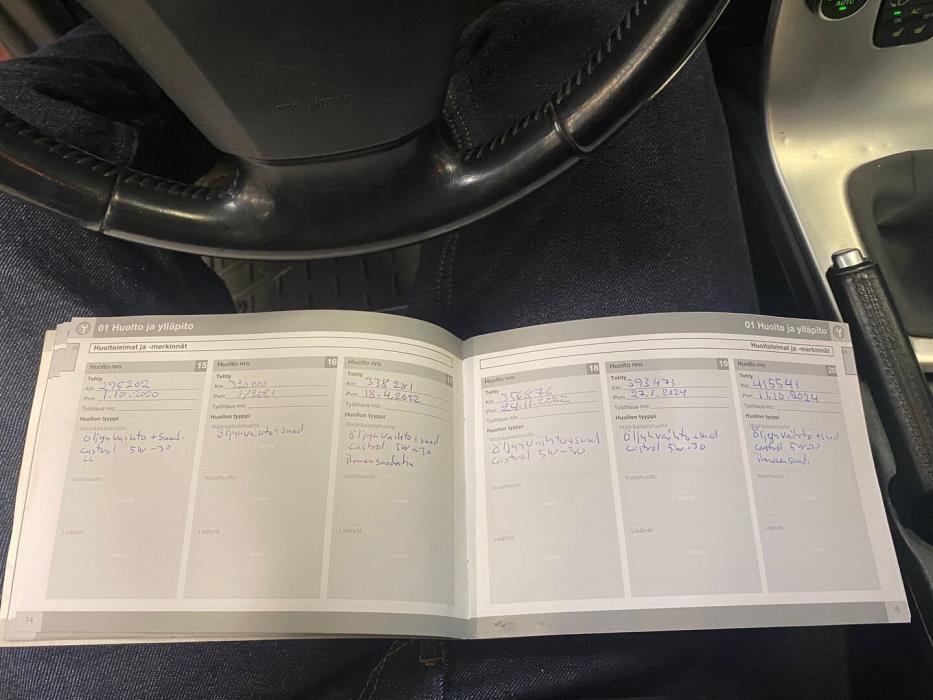 AUTO
AC
01 Huolto ja ylläpito
Huoltoleimat ja -merkinnät
Huolto nro 15
Tehty
Km 295202
Pvm 7.10.2020
Työtilaus nro:
Huollon tyyppi
Määräaikaishuolto
öljynvaihto + suod.
castrol 5W-30
LL
Vuosihuolto
Leima
Lisätyöt
Leima
14
Huolto nro 16
Tehty
Km 320 000
Pvm
Työtilaus nro:
Huollon tyyppi
Määräaikaishuolto
öljynvaihto + suod
Vuosihuolto
Leima
Lisätyöt
Leima
Huolto nro 17
Tehty
Km 338 241
Pvm 18.4.2022
Työtilaus nro:
Huollon tyyppi
Määräaikaishuolto
öljynvaihto + suod
castrol 5W-30
ilmansuodatin
Vuosihuolto
Leima
Lisätyöt
Leima
01 Huolto ja ylläpito
Huoltoleimat ja -merkinnät
Huolto nro 18
Tehty
Km 356876
Pvm 24.11.2022
Työtilaus nro:
Huollon tyyppi
Määräaikaishuolto
öljynvaihto + suod
castrol 5W-30
Vuosihuolto
Leima
Lisätyöt
Leima
Huolto nro 19
Tehty
Km 393473
Pvm 27.1.2024
Työtilaus nro:
Huollon tyyppi
Määräaikaishuolto
öljynvaihto + suod
castrol 5W-30
Vuosihuolto
Leima
Lisätyöt
Leima
Huolto nro 20
Tehty
Km 415541
Pvm 11.10.2024
Työtilaus nro:
Huollon tyyppi
Määräaikaishuolto
öljynvaihto + suod
castrol 5W-30
ilmansuod.
Vuosihuolto
Leima
Lisätyöt
Leima
15